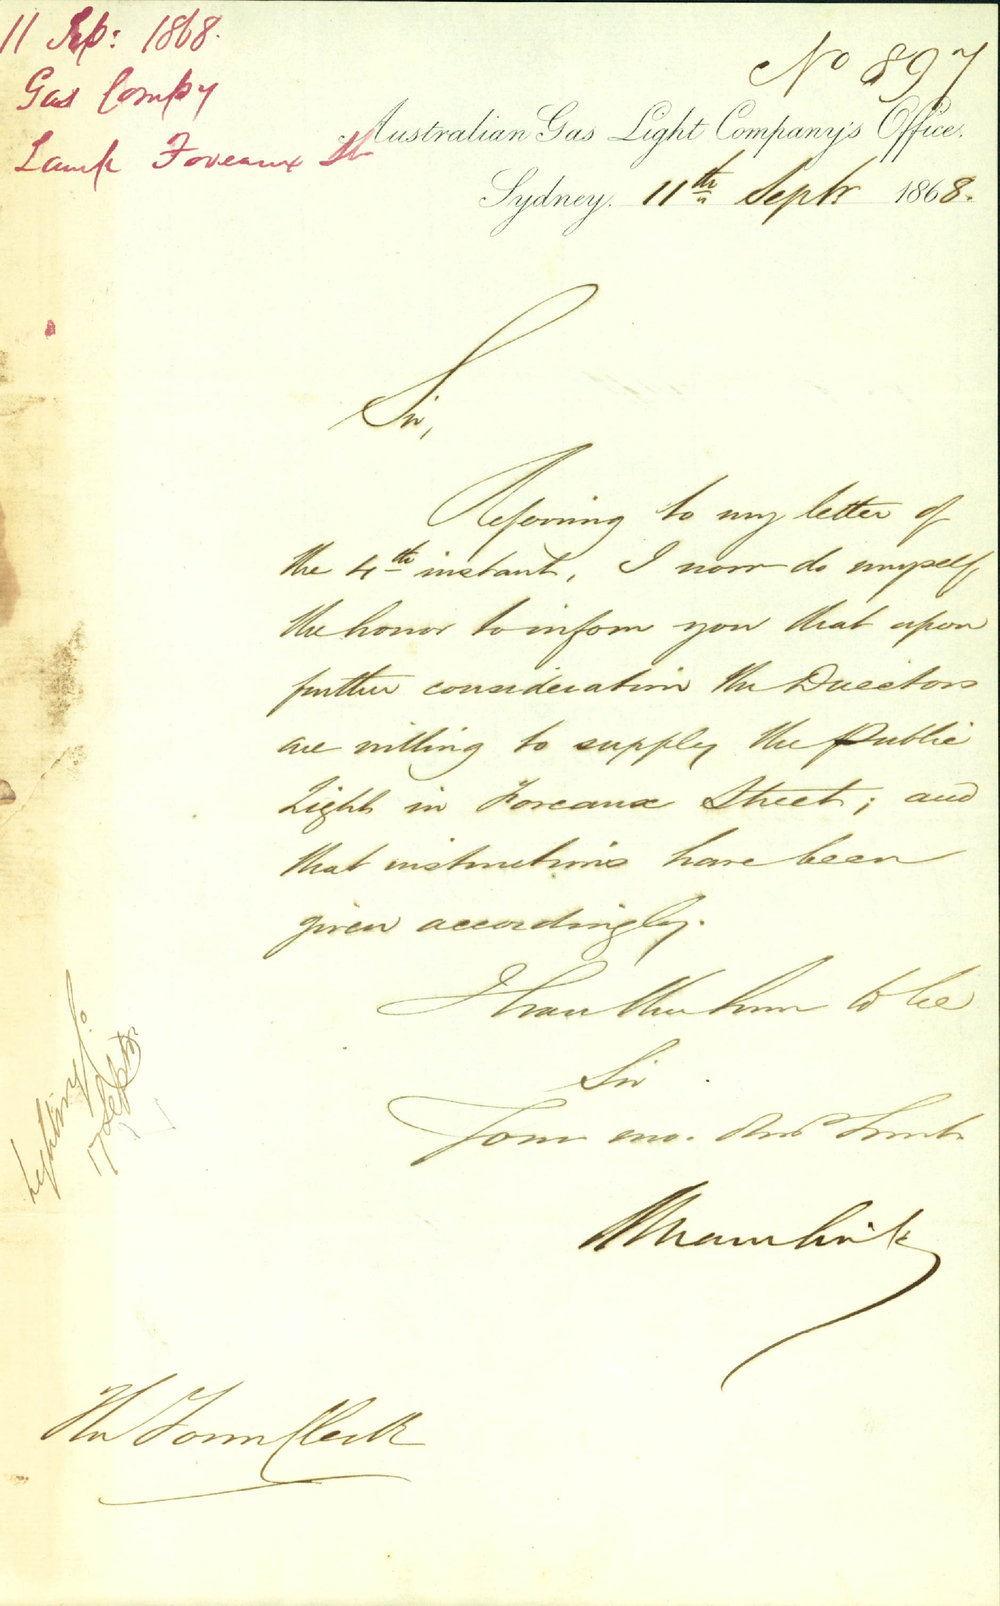 11 Sep: 1868.
Gas Compy
Lamp Foveaux St
No 897
Australian Gas Light Company's Office.
Sydney. 11th Septr 1868.
Sir,
Referring to my letter of
the 4th instant, I now do myself
the honor to inform you that upon
further consideration the Directors
are willing to supply the Public
Light in Foveaux Street; and
that instructions have been
given accordingly.
I have the honor to be
Sir
Your mo. Obt Servt
Lighting
17 Sept
The Town Clerk